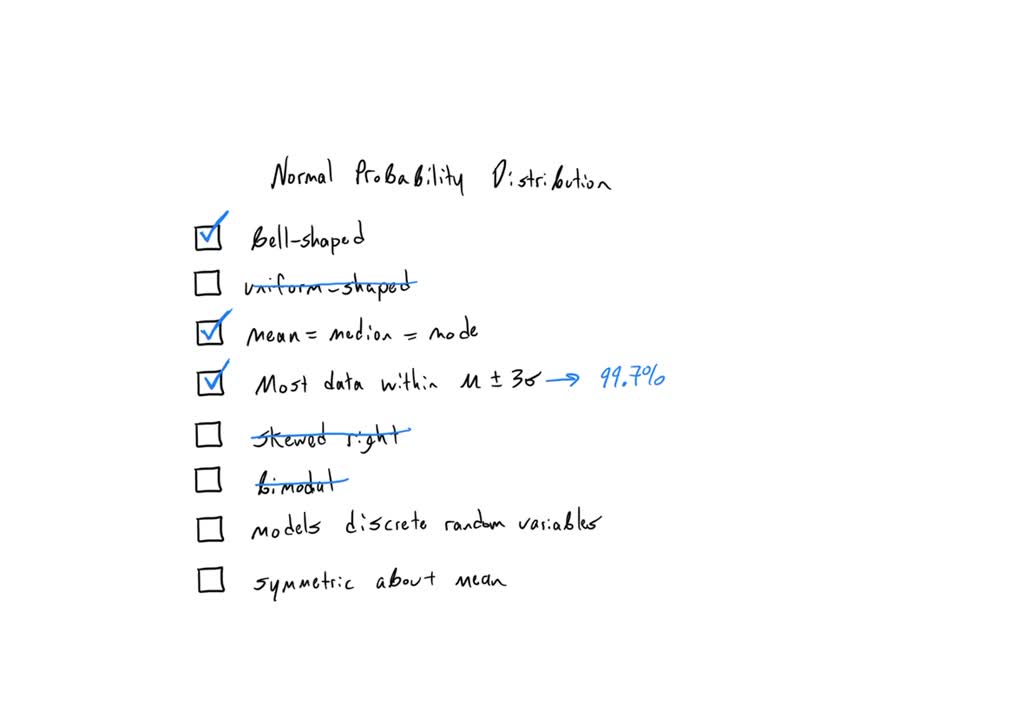 Normal Probability Distribution
☑ Bell-shaped
☐ uniform-shaped
☑ mean = median = mode
☑ Most data within μ ± 3σ → 99.7%
☐ skewed right
☐ bimodal
☐ models discrete random variables
☐ symmetric about mean